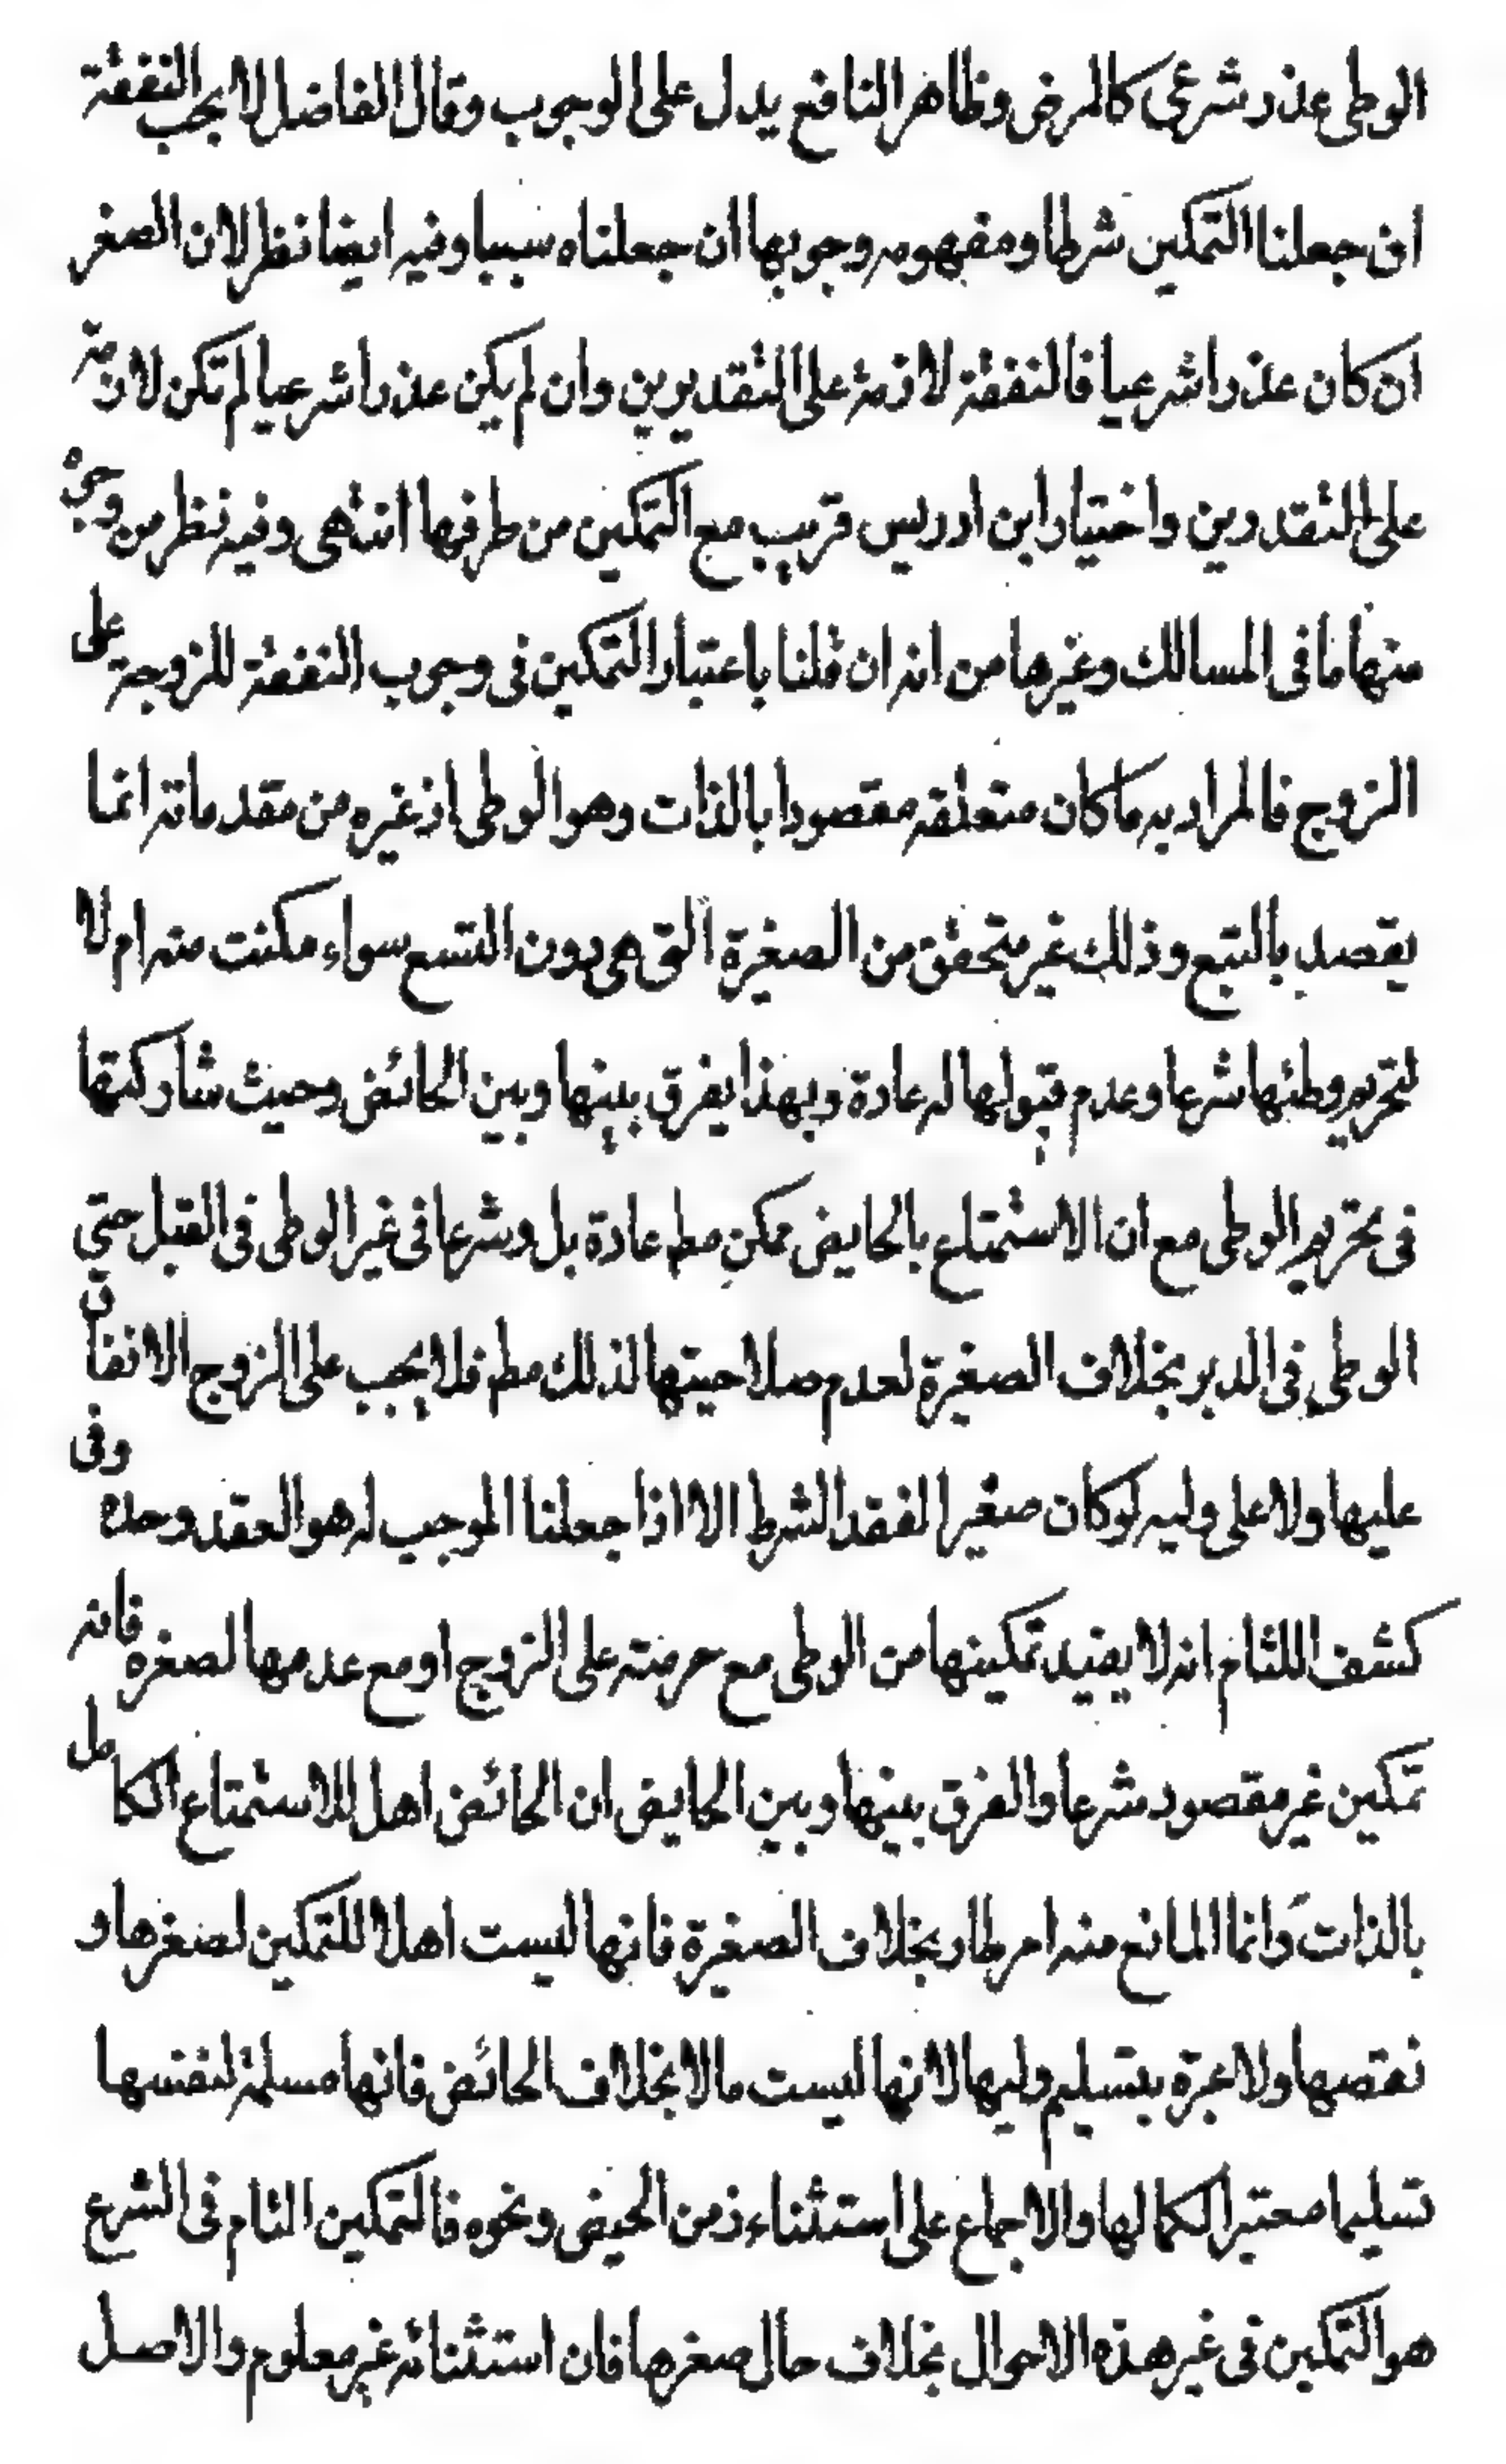 الوطى عذر شرعى كالمرض وظاهر النافع يدل على الوجوب وقال الفاضل لا يجب النفقة
ان جعلنا التمكين شرطا ومفهومه وجوبها ان جعلناه سببا وفيه ايضا نظر لان الصغر
ان كان عذرا شرعيا فالنفقة لازمة على التقديرين وان لم يكن عذرا شرعيا لم تكن لازمة
على التقدرين واختيار ابن ادريس قريب مع التمكين من طرفها انتهى وفيه نظر من وجوه
منها ما فى المسالك وغيرها من انه ان قلنا باعتبار التمكين فى وجوب النفقة للزوجة على
الزوج فالمراد به ما كان متعلقه مقصودا بالذات وهو الوطى اذ غيره من مقدماته انما
يقصد بالتبع وذلك غير متحقق من الصغيرة التى هى دون التسع سواء مكنت منه ام لا
لتحريم وطئها شرعا وعدم قبولها له عادة وبهذا يفرق بينها وبين الحائض وحيث شاركتها
فى تحريم الوطى مع ان الاستمتاع بالحايض ممكن مط عادة بل وشرعا فى غير الوطى فى القبل حتى
الوطى فى الدبر بخلاف الصغيرة لعدم صلاحيتها لذلك مط فلا يجب على الزوج الانفاق
عليها ولا على وليه لو كان صغيرا لفقد الشرط الا اذا جعلنا الموجب له هو العقد وحده وفى
كشف اللثام انه لا يفيد تمكينها من الوطى مع حرمته على الزوج او مع عدمها لصغره فانه
تمكين غير مقصود شرعا والفرق بينها وبين الحايض ان الحائض اهل للاستمتاع الكامل
بالذات وانما المانع منه امر طار بخلاف الصغيرة فانها ليست اهلا للتمكين لصغرها و
نقصها ولا عبرة بتسليم وليها لانها ليست مالا بخلاف الحائض فانها مسلمة لنفسها
تسليما معتبرا لكمالها والاجماع على استثناء زمن الحيض ونحوه فالتمكين التام فى الشرع
هو التمكين فى غير هذه الاحوال بخلاف حال صغرها فان استثنائه غير معلوم والاصل